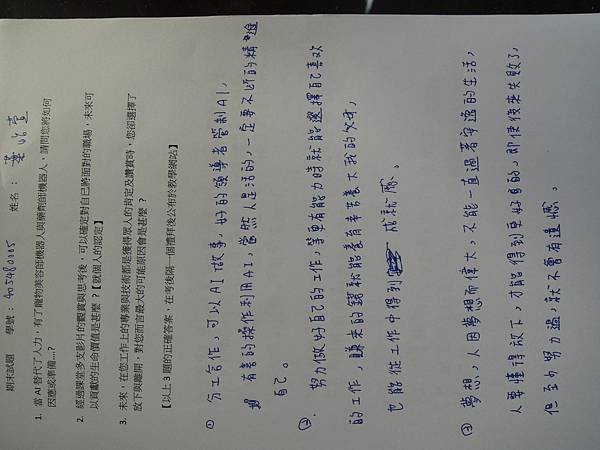 期末試題 學號: 405480005 姓名:
1. 當 AI 替代了人力,有了寵物美容師機器人與藥劑師機器人,請問您將如何
因應或準備....?
2. 經過課堂多支影片的觀賞與思考後,可以確定對自己將面對的職場,未來可
以貢獻的生命價值是甚麼?【就個人的認定】
3. 未來,在您工作上的專業與技術都是獲得眾人的肯定及讚賞時,您卻選擇了
放下與離開,對您而言最大的可能原因會是甚麼?
【以上 3 題的正確答案,在考後隔一個禮拜後公布於教學網站】
① 分工合作,可以AI做事,好的領導者管制AI,
有善的操作利用AI,當然人是活的,一定要不斷的精進
自己。
②. 努力做好自己的工作,等更有能力時就能選擇自己喜歡
的工作,賺來的錢就能養育幸苦養下我的父母,
也能從工作中得到 成就感。
③ 夢想,人因夢想而偉大,不能一直過著安逸的生活,
人要懂得放下,才能得到更好的,即使後來失敗了,
但至少努力過,就不會有遺憾。